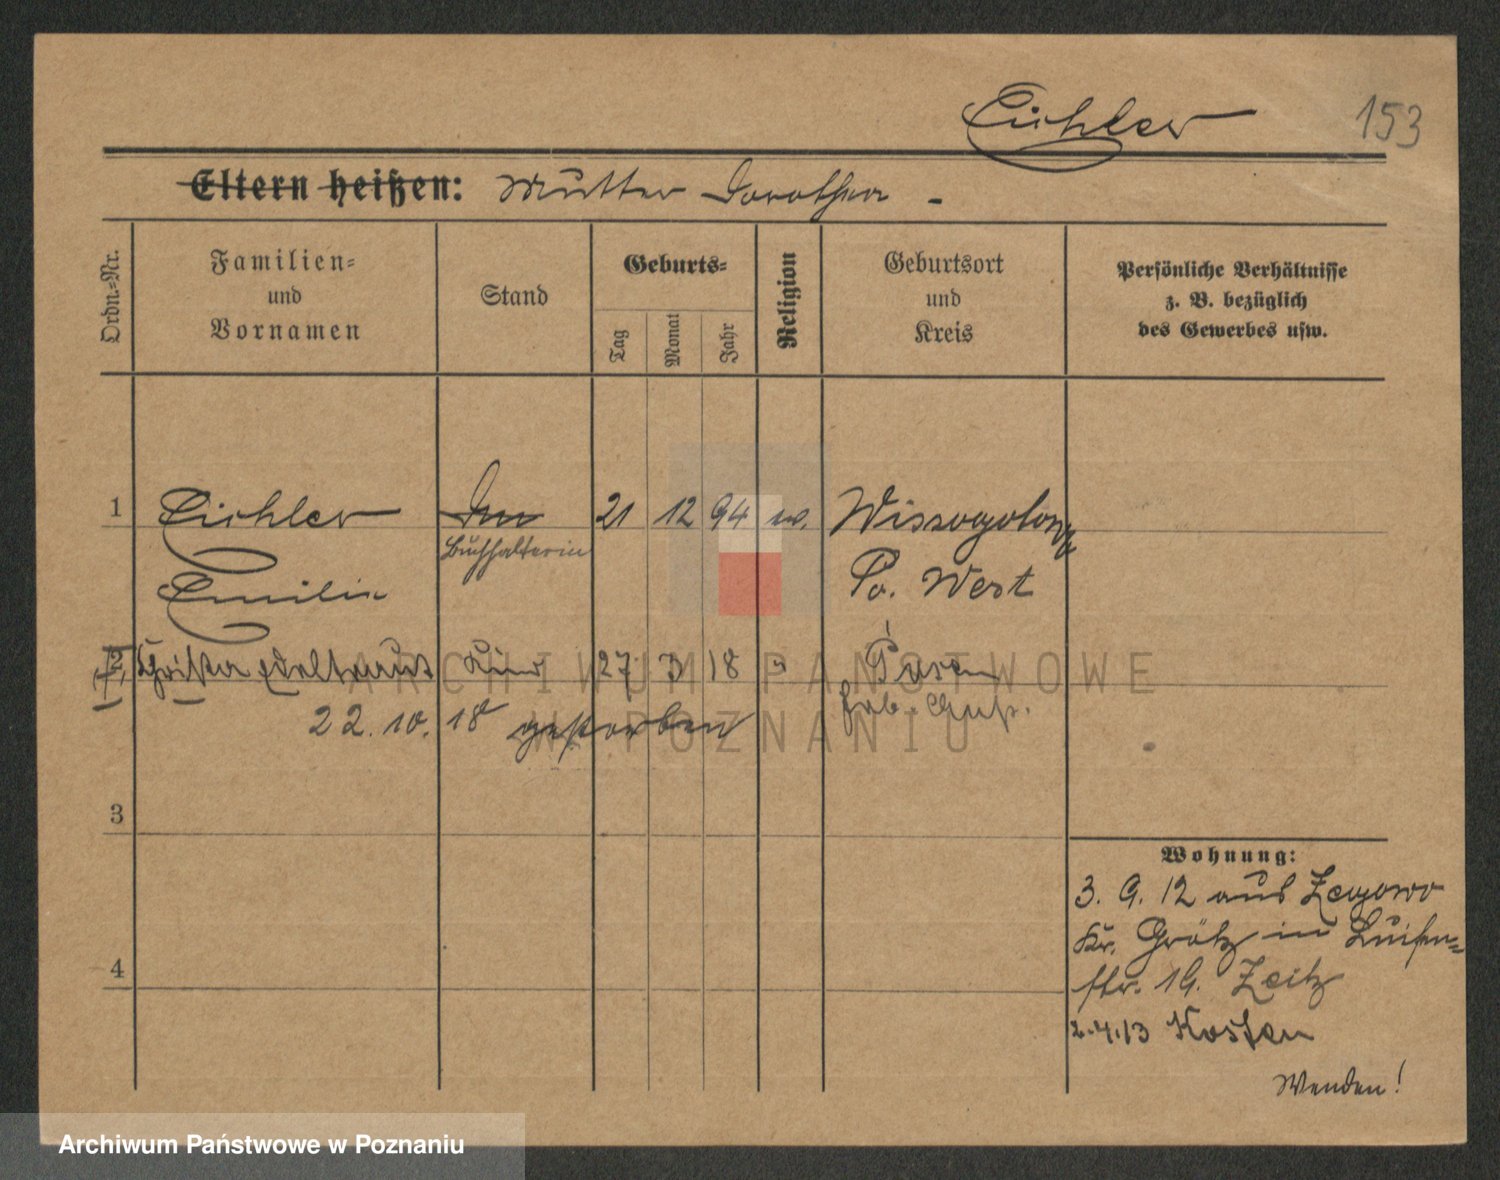 Eichler 153
Eltern heißen: Mutter Dorothea -
Ordn.=Nr.
Familien=
und
Vornamen
Stand
Geburts=
Tag
Monat
Jahr
Religion
Geburtsort
und
Kreis
Persönliche Verhältnisse
z. B. bezüglich
des Gewerbes usw.
1 Eichler 21 12 94 ev. Wissogotowo
Buchhalterin
Emilie Po. West
2 Edeltraut Kind 27 3 18 " Posen
22. 10. 18 gestorben
3
4
Wohnung:
3. 9. 12 aus Zegowo
Kr. Grätz in Luisen=
str. 19. Zeitz
2.4.13 Kosten
Wenden!
ARCHIWUM PAŃSTWOWE
W POZNANIU
Archiwum Państwowe w Poznaniu